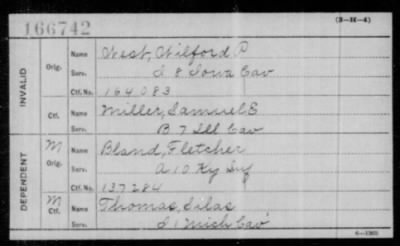 166742
(3-H-4)
INVALID
Orig. Name West, Wilford P
Serv. I 8 Iowa Cav
Ctf. No. 164.083
Ctf. Name Miller, Samuel E
Serv. B 7 Ill Cav
DEPENDENT
M Orig. Name Bland, Fletcher
Serv. A 10 Ky Inf
Ctf. No. 137284
M Ctf. Name Thomas, Silas
Serv. I 1 Mich Cav